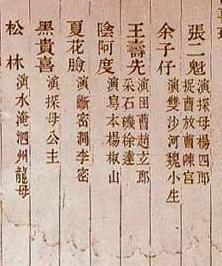 張二魁 演探母楊四郎
捉曹放曹陳宮
余子仔 演雙沙河魏小生
王壽先 演田曹趙玄郎
采石磯徐達
陰阿度 演寫本楊椒山
夏花臉 演斷密澗李密
黑貴喜 演探母公主
松林 演水淹泗州龍母